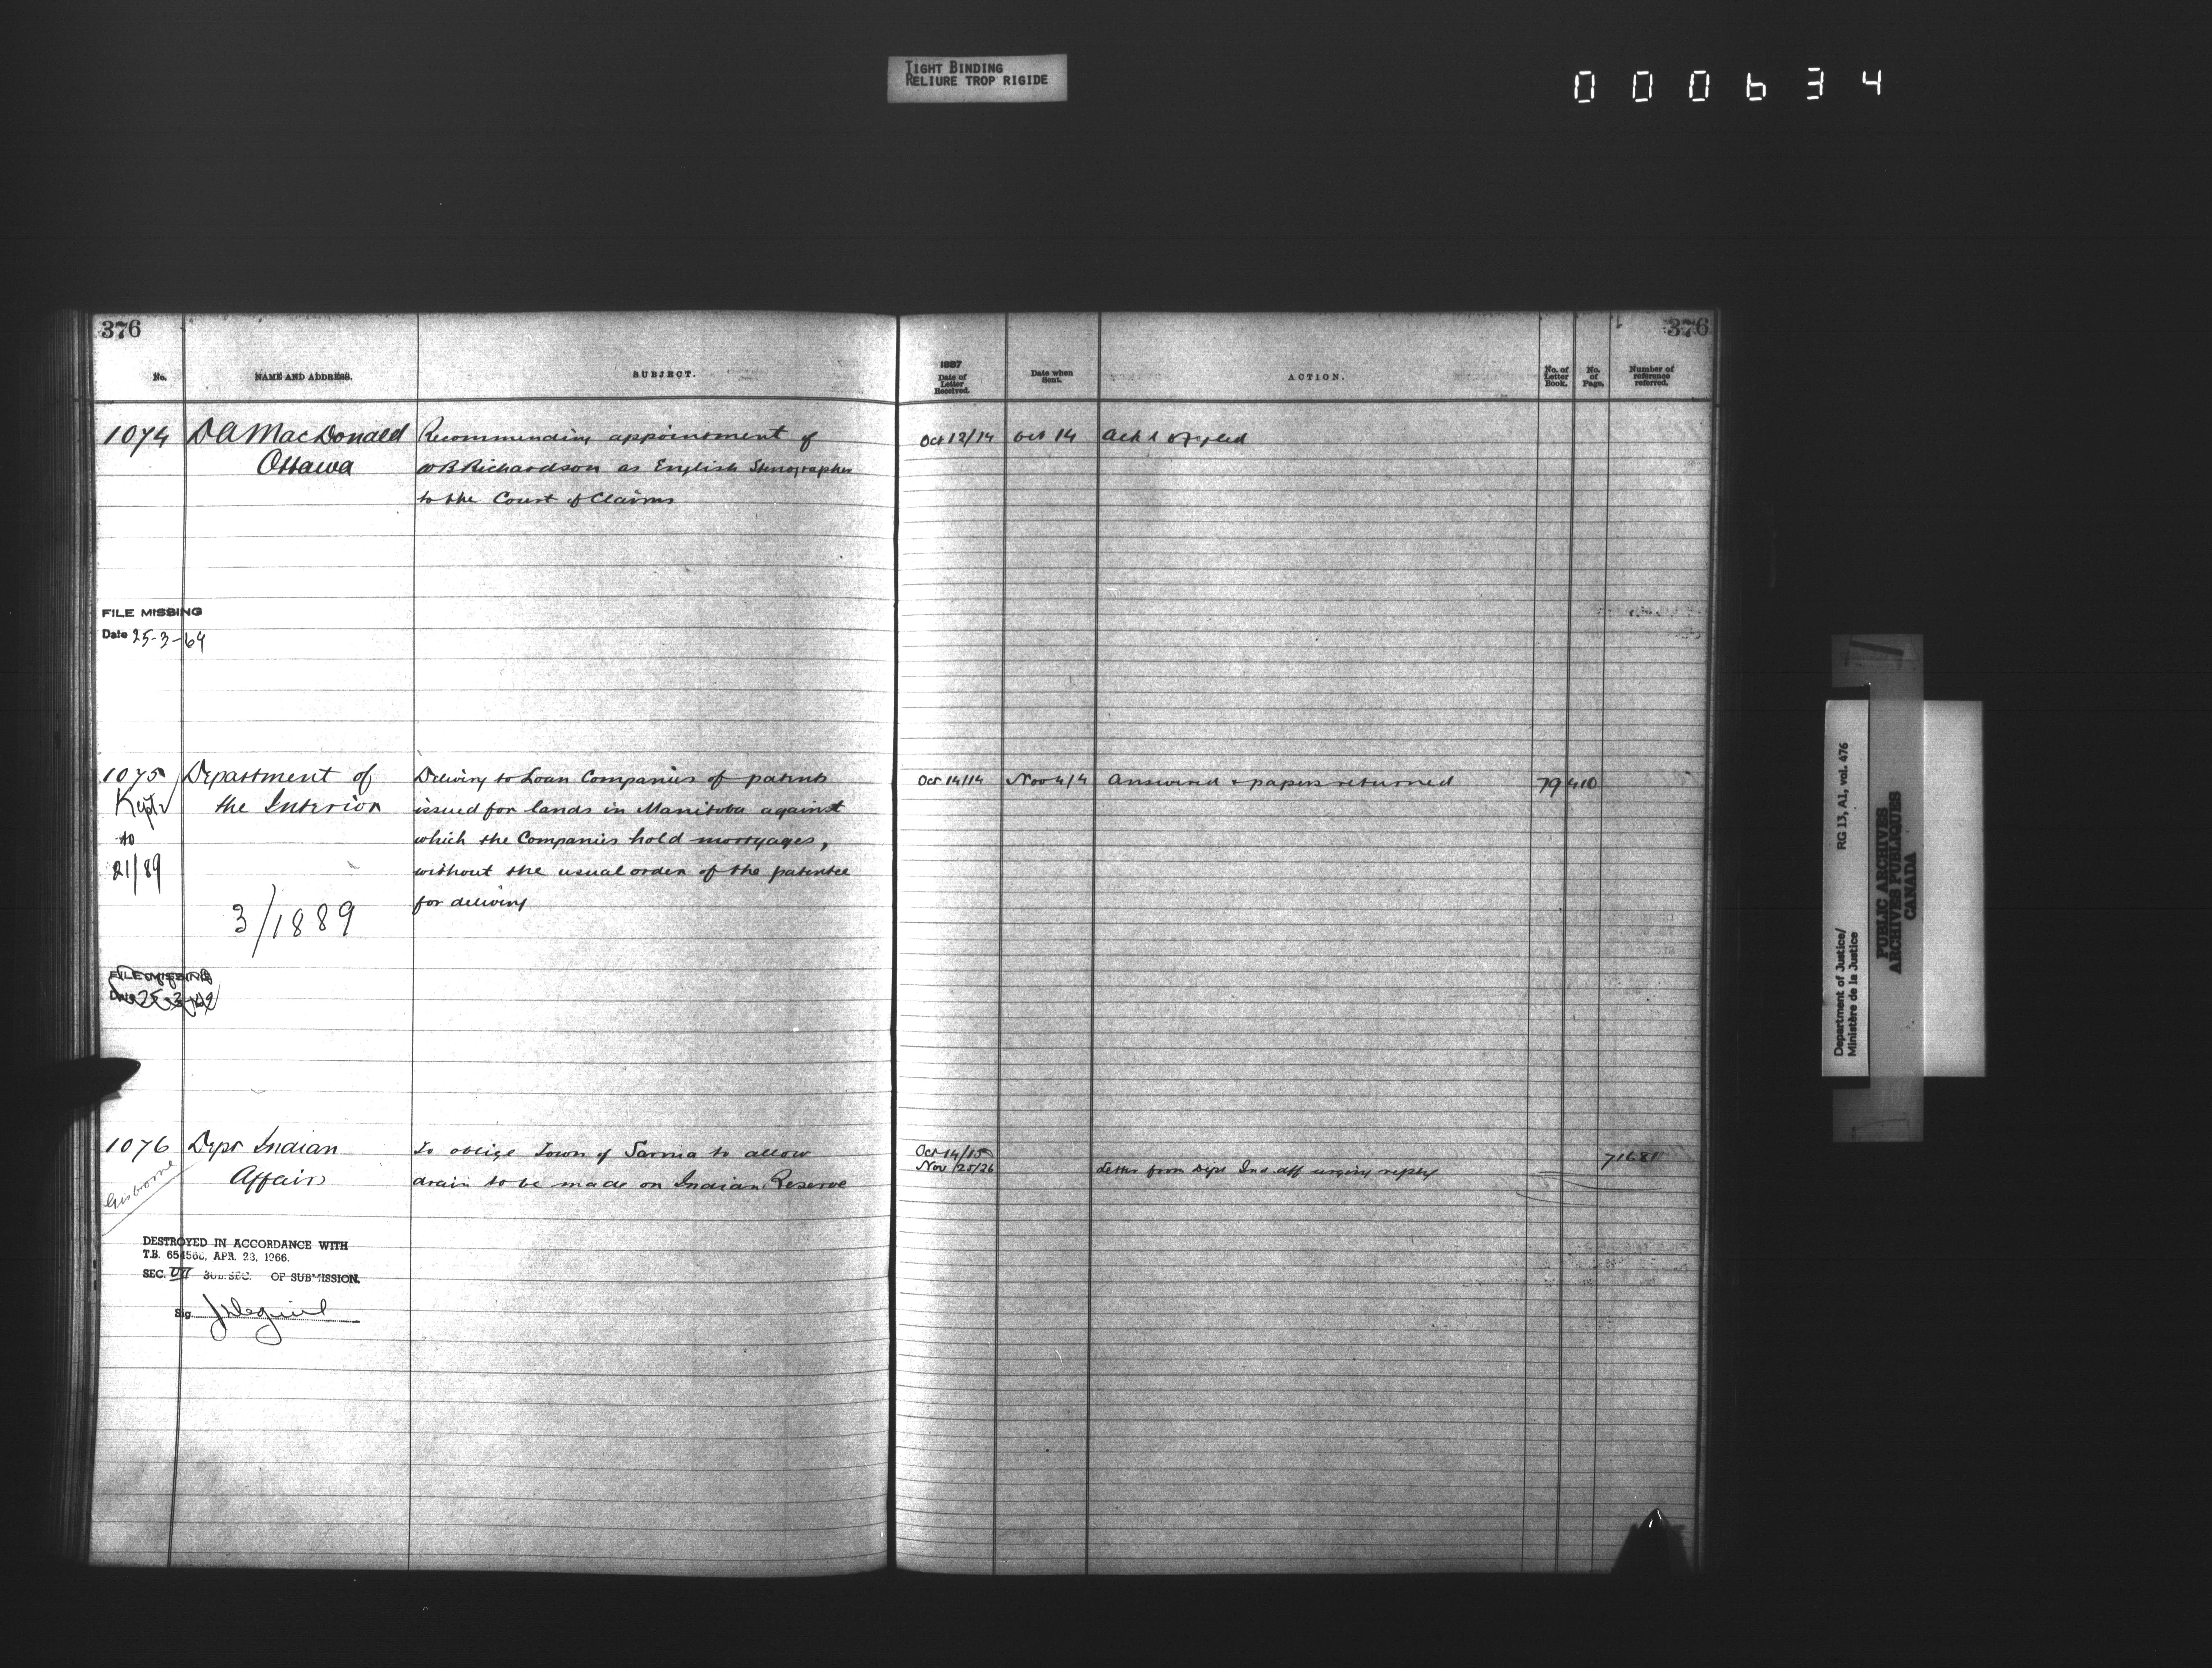 TIGHT BINDING
RELIURE TROP RIGIDE
000634
376
No.
NAME AND ADDRESS.
SUBJECT.
1074
D A MacDonald
Ottawa
Recommending appointment of
W B Richardson as English Stenographer
to the Court of Claims
FILE MISSING
Date 25-3-64
1075
to
21/89
Department of
the Interior
3/1889
Delivery to Loan Companies of patents
issued for lands in Manitoba against
which the Companies hold mortgages,
without the usual order of the patentee
for delivery
FILE MISSING
Date 25-3-64
1076
Gisborne
Dept Indian
Affairs
To oblige Town of Sarnia to allow
drain to be made on Indian Reserve
DESTROYED IN ACCORDANCE WITH
T.B. APR. 28, 1966.
SEC. SUB.SEC. OF SUBMISSION.
Sig.
376
1887
Date of
Letter
Received.
Date when
Sent.
ACTION.
No. of
Letter
Book.
No.
of
Page.
Number of
reference
referred.
Oct 12/14 Oct 14 Ack d
Oct 14/14 Nov 4/4 Answered & papers returned 79 410
Oct 14/15
Nov 25/26 Letter from Dept Ind. Aff urging reply
Department of Justice/
Ministère de la Justice
RG 13, A1, vol. 476
PUBLIC ARCHIVES
ARCHIVES PUBLIQUES
CANADA